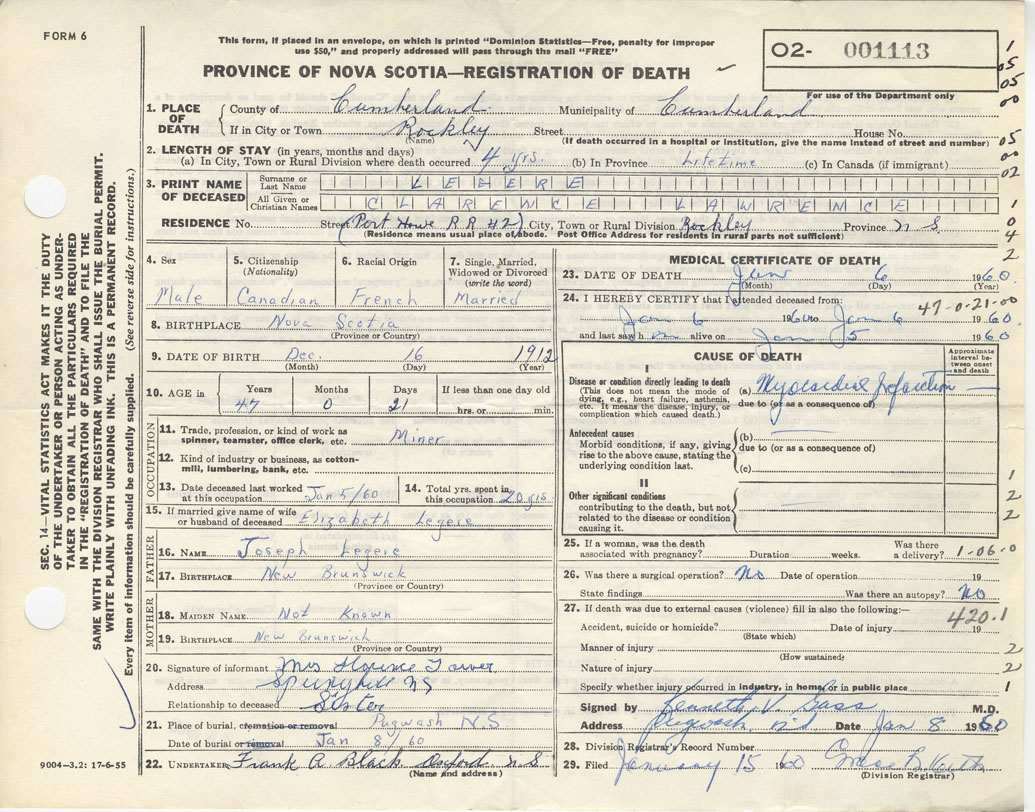 FORM 6
This form, if placed in an envelope, on which is printed “Dominion Statistics—Free, penalty for improper
use $50,” and properly addressed will pass through the mail “FREE”
PROVINCE OF NOVA SCOTIA—REGISTRATION OF DEATH
O2- 001113
For use of the Department only
1. PLACE OF DEATH County of Cumberland Municipality of Cumberland
If in City or Town Rockley Street House No.
(Name) (If death occurred in a hospital or institution, give the name instead of street and number)
2. LENGTH OF STAY (in years, months and days)
(a) In City, Town or Rural Division where death occurred 4 yrs. (b) In Province Lifetime (c) In Canada (if immigrant)
3. PRINT NAME OF DECEASED
Surname or Last Name LEGERE
All Given or Christian Names CLARENCE LAWRENCE
RESIDENCE No. Street (Port Howe RR #2) City, Town or Rural Division Rockley Province N S.
(Residence means usual place of abode. Post Office Address for residents in rural parts not sufficient)
4. Sex
Male
5. Citizenship
(Nationality)
Canadian
6. Racial Origin
French
7. Single, Married,
Widowed or Divorced
(write the word)
Married
8. BIRTHPLACE Nova Scotia
(Province or Country)
9. DATE OF BIRTH Dec. 16 1912
(Month) (Day) (Year)
10. AGE in
Years Months Days If less than one day old
47 0 21 hrs. or min.
OCCUPATION
11. Trade, profession, or kind of work as
spinner, teamster, office clerk, etc. Miner
12. Kind of industry or business, as cotton-
mill, lumbering, bank, etc.
13. Date deceased last worked
at this occupation Jan 5/60
14. Total yrs. spent in
this occupation 20 yrs.
15. If married give name of wife
or husband of deceased Elizabeth Legere
FATHER
16. NAME Joseph Legere
17. BIRTHPLACE New Brunswick
(Province or Country)
MOTHER
18. MAIDEN NAME Not Known
19. BIRTHPLACE New Brunswick
(Province or Country)
20. Signature of informant Mrs Florence Tower
Address Springhill NS
Relationship to deceased Sister
21. Place of burial, cremation or removal Pugwash N.S.
Date of burial or removal Jan 8/60
22. UNDERTAKER Frank R Black Oxford N.S
(Name and address)
9004—3.2: 17-6-55
MEDICAL CERTIFICATE OF DEATH
23. DATE OF DEATH Jan 6 1960
(Month) (Day) (Year)
24. I HEREBY CERTIFY that I attended deceased from:
47-0-21-00
Jan 6 1960 to Jan 6 1960
and last saw h m alive on Jan 5 1960
CAUSE OF DEATH
Approximate
interval be-
tween onset
and death
I
Disease or condition directly leading to death
(This does not mean the mode of
dying, e.g., heart failure, asthenia,
etc. It means the disease, injury, or
complication which caused death.)
(a) Myocardial Infarction
due to (or as a consequence of)
Antecedent causes
Morbid conditions, if any, giving
rise to the above cause, stating the
underlying condition last.
(b)
due to (or as a consequence of)
(c)
II
Other significant conditions
contributing to the death, but not
related to the disease or condition
causing it.
25. If a woman, was the death
associated with pregnancy? Duration weeks.
Was there
a delivery?
1-06-0
26. Was there a surgical operation? No Date of operation 19
State findings Was there an autopsy? No
27. If death was due to external causes (violence) fill in also the following:—
420.1
Accident, suicide or homicide? Date of injury 19
(State which)
Manner of injury
(How sustained)
Nature of injury
Specify whether injury occurred in industry, in home, or in public place
Signed by Kenneth V. Gass M.D.
Address Pugwash, Date Jan 8 1960
28. Division Registrar's Record Number
29. Filed January 15 1960
(Division Registrar)
SEC. 14—VITAL STATISTICS ACT MAKES IT THE DUTY
OF THE UNDERTAKER OR PERSON ACTING AS UNDER-
TAKER TO OBTAIN ALL THE PARTICULARS REQUIRED
IN THE “REGISTRATION OF DEATH” AND FILE THE
SAME WITH THE DIVISION REGISTRAR WHO SHALL ISSUE THE BURIAL PERMIT.
WRITE PLAINLY WITH UNFADING INK. THIS IS A PERMANENT RECORD.
Every item of information should be carefully supplied. (See reverse side for instructions.)
1
05
05
00
05
00
02
1
0
4
2
1
2
2
2
2
1